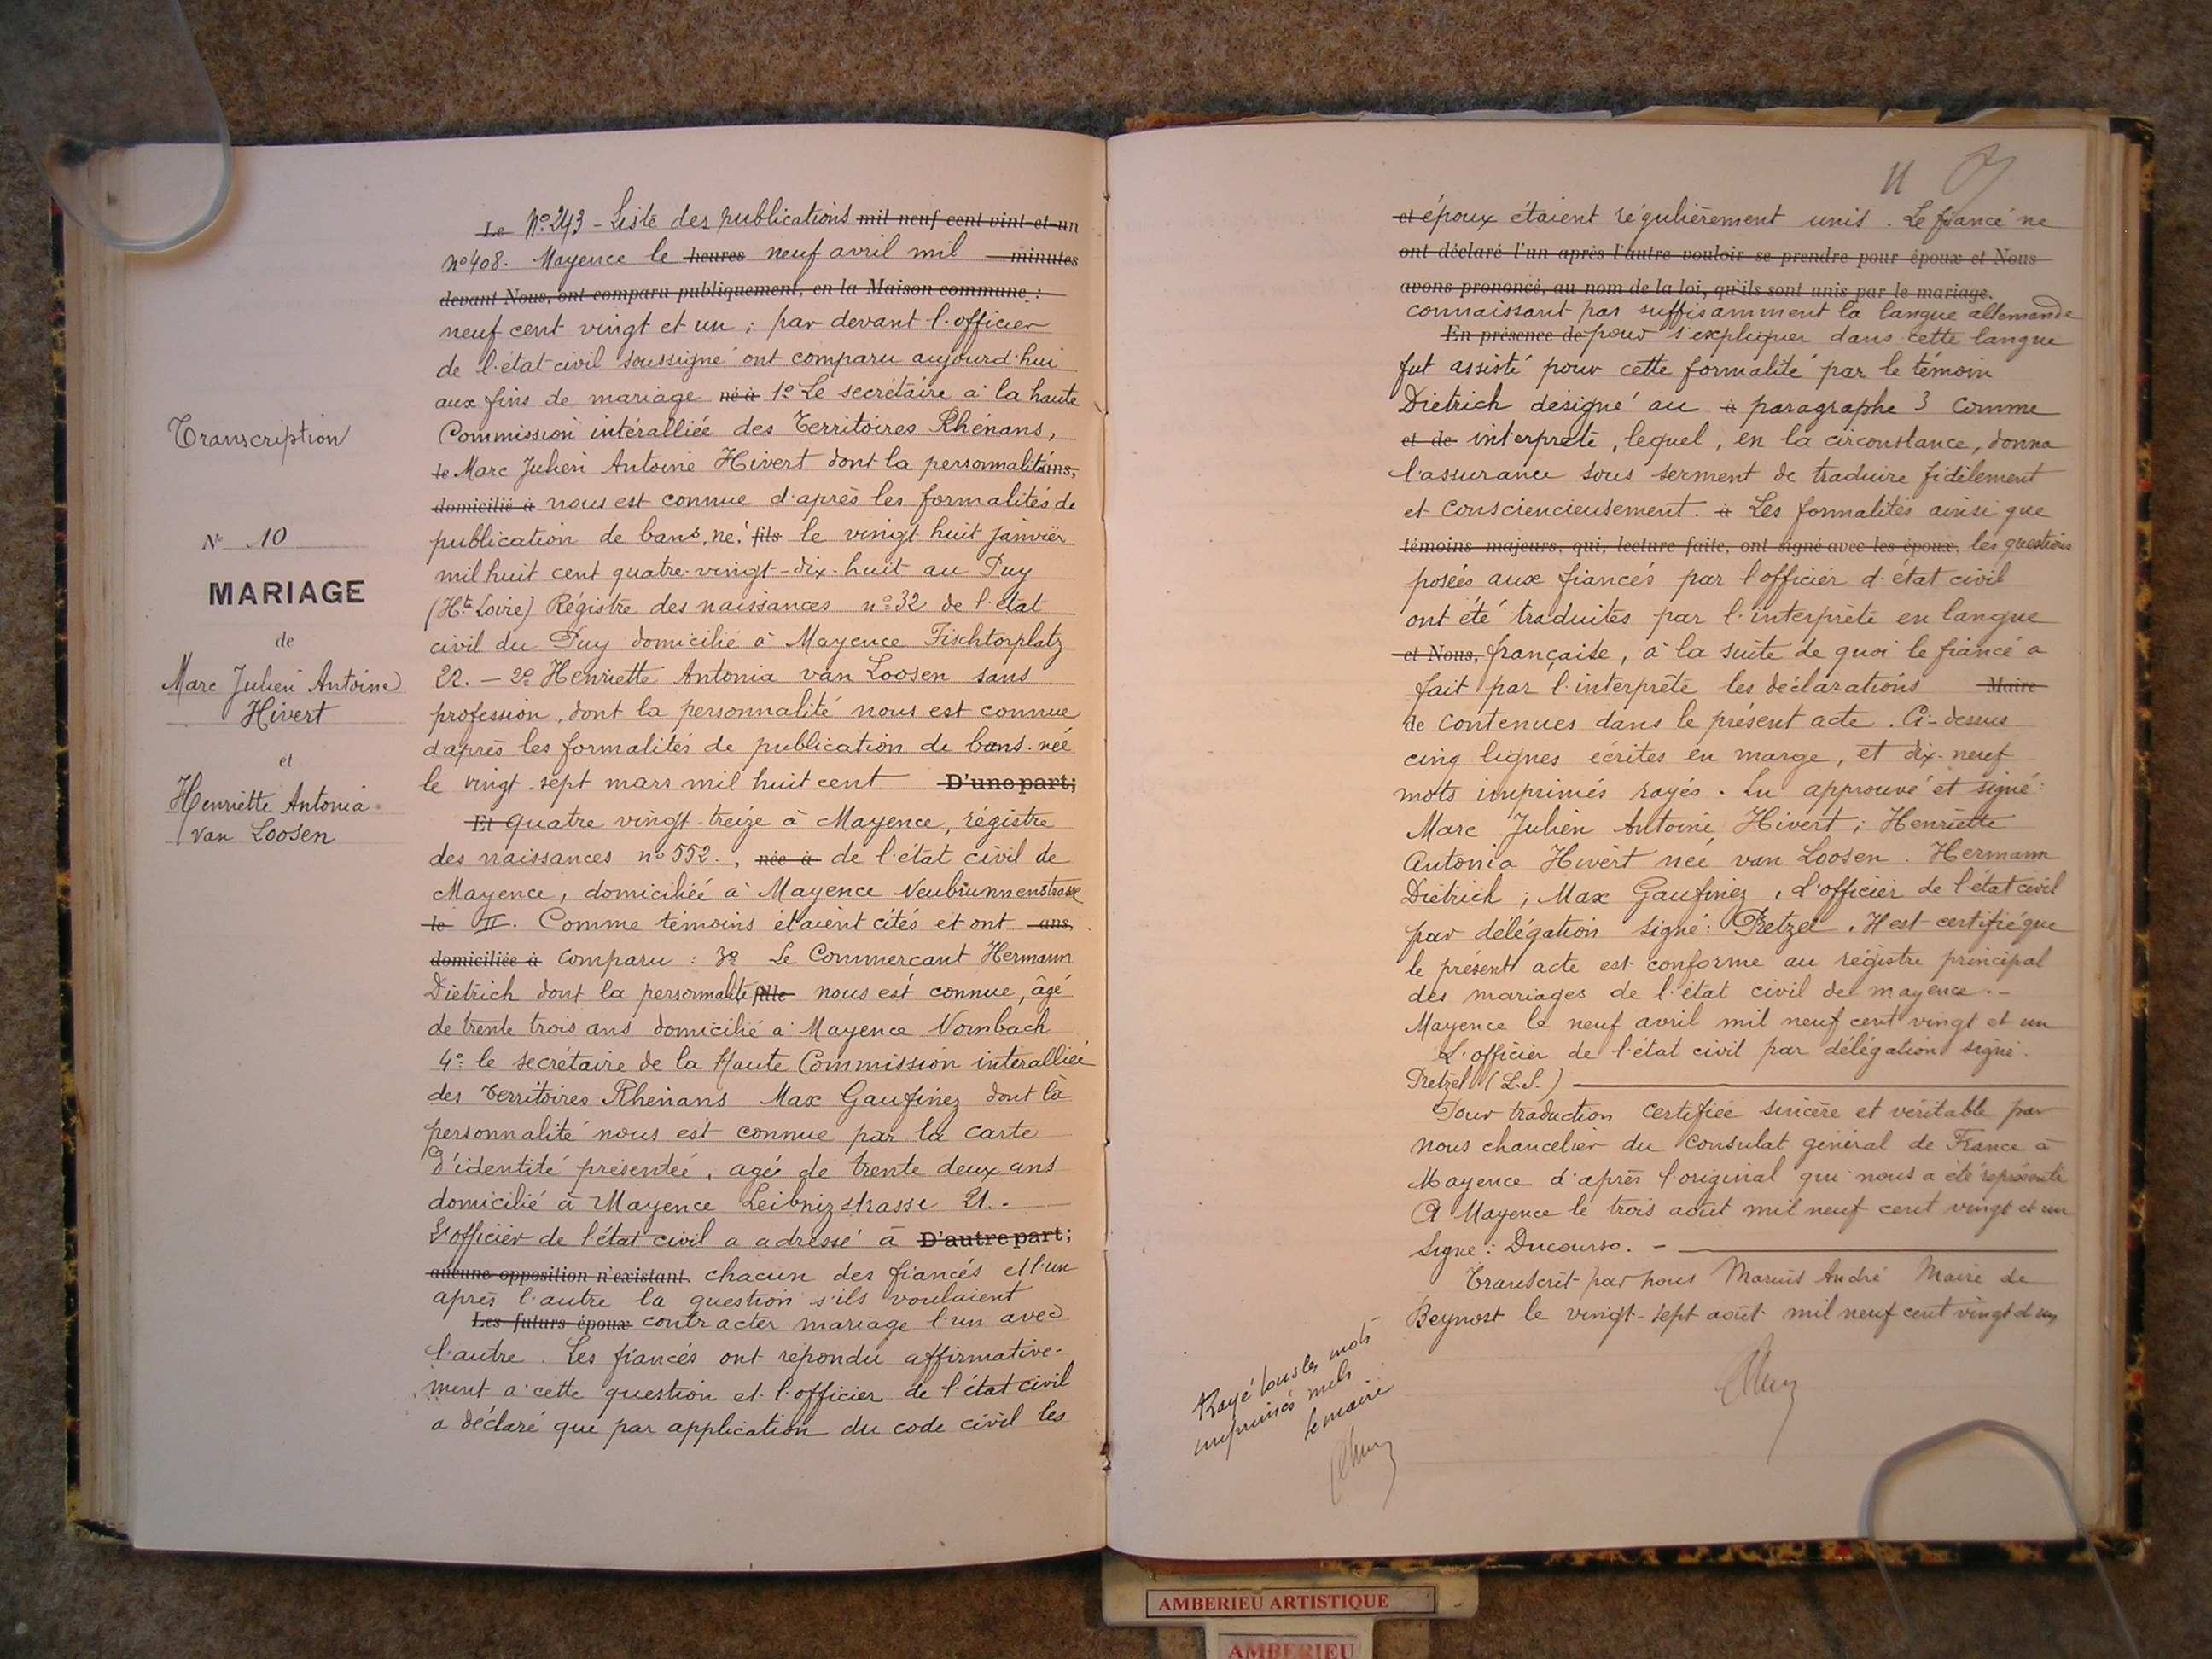 Transcription
N° 10
MARIAGE
de
Marc Julien Antoine
Hivert
et
Henriette Antonia
van Loosen
Le N° 243 - Liste des publications mil neuf cent vint-et-un
n° 408. Mayence le heures neuf avril mil minutes
devant Nous, ont comparu publiquement, en la Maison commune :
neuf cent vingt et un ; par devant l'officier
de l'état civil soussigné ont comparu aujourd'hui
aux fins de mariage né à 1° Le secrétaire à la haute
Commission intéralliée des Territoires Rhénans,
le Marc Julien Antoine Hivert dont la personnalité ans,
domicilié à nous est connue d'après les formalités de
publication de bans, né, fils le vingt huit janvier
mil huit cent quatre-vingt-dix-huit au Puy
(Hte Loire) Régistre des naissances n° 32 de l'état
civil du Puy domicilié à Mayence Fischtorplatz
22. - 2° Henriette Antonia van Loosen sans
profession, dont la personnalité nous est connue
d'après les formalités de publication de bans. née
le vingt-sept mars mil huit cent D'une part;
Et quatre vingt-treize à Mayence, régistre
des naissances n° 552., née à de l'état civil de
Mayence, domiciliée à Mayence Neubrunnenstrasse
le II. Comme témoins étaient cités et ont ans,
domiciliée à comparu : 3° Le Commerçant Hermann
Dietrich dont la personnalité fille nous est connue, âgé
de trente trois ans domicilié à Mayence Nombach
4° le secrétaire de la Haute Commission interalliée
des Territoires Rhénans Max Gaufinez dont la
personnalité nous est connue par la carte
d'identité présentée, agée de trente deux ans
domicilié à Mayence Leibnizstrasse 21.-
L'officier de l'état civil a adressé à D'autre part;
aucune opposition n'existant. chacun des fiancés et l'un
après l'autre la question s'ils voulaient
Les futurs époux contracter mariage l'un avec
l'autre. Les fiancés ont répondu affirmative-
ment à cette question et l'officier de l'état civil
a déclaré que par application du code civil les
11
et époux étaient régulièrement unis. Le fiancé ne
ont déclaré l'un après l'autre vouloir se prendre pour époux et Nous
avons prononcé, au nom de la loi, qu'ils sont unis par le mariage.
connaissant pas suffisamment la langue allemande
En présence de pour s'expliquer dans cette langue
fut assisté pour cette formalité par le témoin
Dietrich désigné au à paragraphe 3 comme
et de interprète, lequel, en la circonstance, donna
l'assurance sous serment de traduire fidèlement
et consciencieusement. à Les formalités ainsi que
témoins majeurs, qui, lecture faite, ont signé avec les époux, les questions
posées aux fiancés par l'officier d'état civil
ont été traduites par l'interprète en langue
et Nous, française, à la suite de quoi le fiancé a
fait par l'interprète les déclarations Maire
de contenues dans le présent acte. Ci-dessus
cinq lignes écrites en marge, et dix-neuf
mots imprimés rayés. Lu approuvé et signé:
Marc Julien Antoine Hivert ; Henriette
Antonia Hivert née van Loosen. Hermann
Dietrich ; Max Gaufinez, L'officier de l'état civil
par délégation signé: Pretzel. Il est certifié que
le présent acte est conforme au régistre principal
des mariages de l'état civil de mayence.-
Mayence le neuf avril mil neuf cent vingt et un
L'officier de l'état civil par délégation signé.
Pretzel (L.S.)
Pour traduction certifiée sincère et véritable par
nous chancelier du Consulat général de France à
Mayence d'après l'original qui nous a été représenté
A Mayence le trois août mil neuf cent vingt et un
Signé : Ducourso. -
Transcrit par nous Marius André Maire de
Beynost le vingt-sept août mil neuf cent vingt et un
Rayé tous les mots
imprimés nuls
le maire
AMBERIEU ARTISTIQUE
AMBERIEU